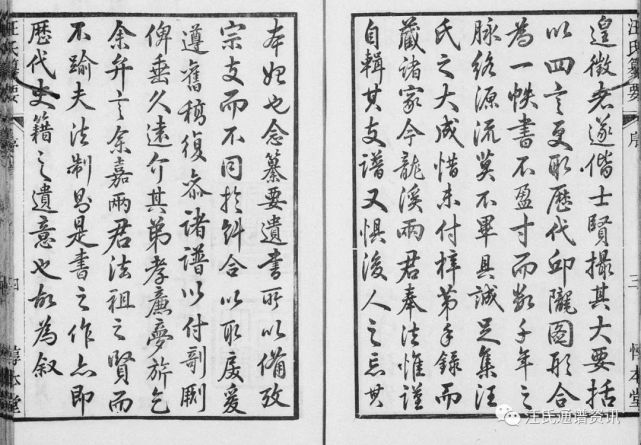 遑徵君遂偕士賢撮其大要括
以四言更取歷代邱隴圖形合
為一帙書不盈寸而數千年之
脉絡源流莫不畢具誠足集汪
氏之大成惜未付梓第手錄而
藏諸家今龍溪兩君奉法惟謹
自輯其支譜又懼後人之忘其
汪氏纂要
序
三
惇本堂
本始也念纂要遺書所以備攷
宗支而不同於斜合以取戾爰
遵舊稿復叅諸譜以付剞劂
俾垂久遠介其弟孝廉夢旂乞
余弁言余嘉兩君法祖之賢而
不踰夫法制則是書之作亦即
歷代史籍之遺意也故為叙
汪氏纂要
序
四
惇本堂
汪氏通谱资讯